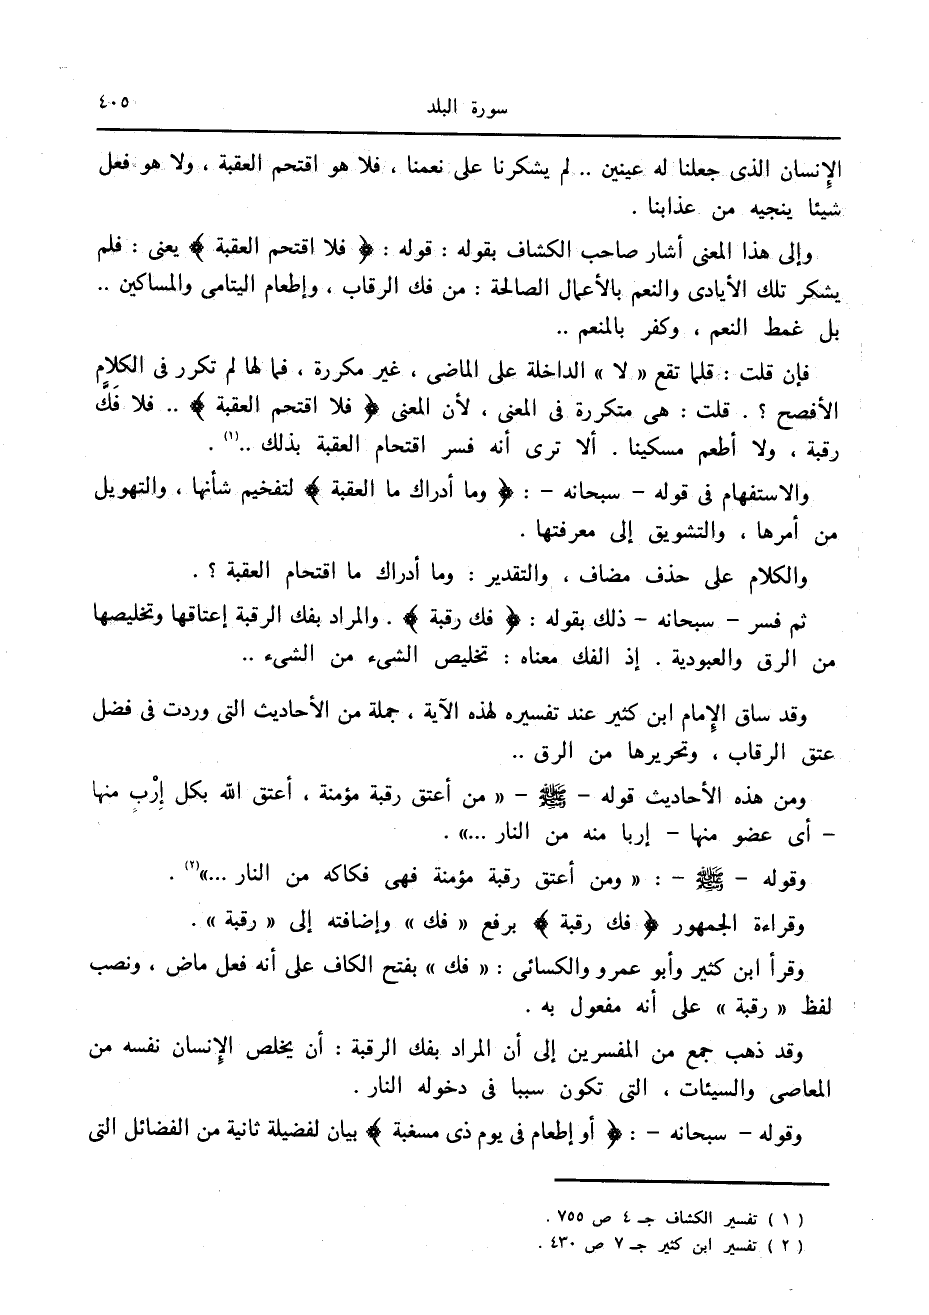 سورة البلد ٤٠٥
الإنسان الذى جعلنا له عينين .. لم يشكرنا على نعمنا ، فلا هو اقتحم العقبة ، ولا هو فعل
شيئا ينجيه من عذابنا .
وإلى هذا المعنى أشار صاحب الكشاف بقوله : قوله : ﴿ فلا اقتحم العقبة ﴾ يعنى : فلم
يشكر تلك الأيادى والنعم بالأعمال الصالحة : من فك الرقاب ، وإطعام اليتامى والمساكين ..
بل غمط النعم ، وكفر بالمنعم ..
فإن قلت : قلما تقع « لا » الداخلة على الماضى ، غير مكررة ، فما لها لم تكرر فى الكلام
الأفصح ؟ . قلت : هى متكررة فى المعنى ، لأن المعنى ﴿ فلا اقتحم العقبة ﴾ .. فلا فَكَّ
رقبة ، ولا أطعم مسكينا . ألا ترى أنه فسر اقتحام العقبة بذلك ..(١) .
والاستفهام فى قوله – سبحانه – : ﴿ وما أدراك ما العقبة ﴾ لتفخيم شأنها ، والتهويل
من أمرها ، والتشويق إلى معرفتها .
والكلام على حذف مضاف ، والتقدير : وما أدراك ما اقتحام العقبة ؟ .
ثم فسر – سبحانه – ذلك بقوله : ﴿ فك رقبة ﴾ . والمراد بفك الرقبة إعتاقها وتخليصها
من الرق والعبودية . إذ الفك معناه : تخليص الشىء من الشىء ..
وقد ساق الإمام ابن كثير عند تفسيره لهذه الآية ، جملة من الأحاديث التى وردت فى فضل
عتق الرقاب ، وتحريرها من الرق ..
ومن هذه الأحاديث قوله – ﷺ – « من أعتق رقبة مؤمنة ، أعتق الله بكل إرْبٍ منها
– أى عضو منها – إربا منه من النار ...» .
وقوله – ﷺ – : « ومن أعتق رقبة مؤمنة فهى فكاكه من النار ...»(٢) .
وقراءة الجمهور ﴿ فك رقبة ﴾ برفع « فك » وإضافته إلى « رقبة » .
وقرأ ابن كثير وأبو عمرو والكسائى : « فك » بفتح الكاف على أنه فعل ماض ، ونصب
لفظ « رقبة » على أنه مفعول به .
وقد ذهب جمع من المفسرين إلى أن المراد بفك الرقبة : أن يخلص الإنسان نفسه من
المعاصى والسيئات ، التى تكون سببا فى دخوله النار .
وقوله – سبحانه – : ﴿ أو إطعام فى يوم ذى مسغبة ﴾ بيان لفضيلة ثانية من الفضائل التى
( ١ ) تفسير الكشاف جـ ٤ ص ٧٥٥ .
( ٢ ) تفسير ابن كثير جـ ٧ ص ٤٣٠ .